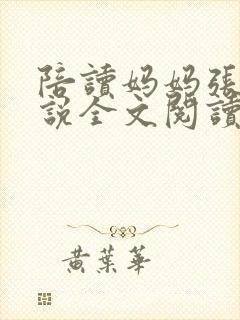 陪讀媽媽張
說全文閱讀
黃葉華